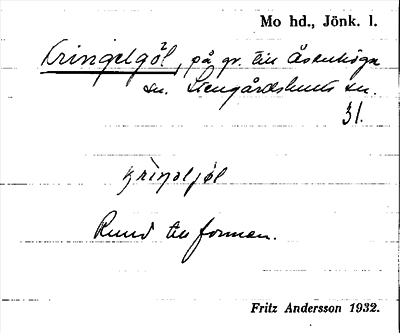 Mo hd., Jönk. l.
Kringelgöl, på gr. till Åsenhöga
sn. Stengårdshults sn.
31.
krìŋəljøl
Rund till formen.
Fritz Andersson 1932.